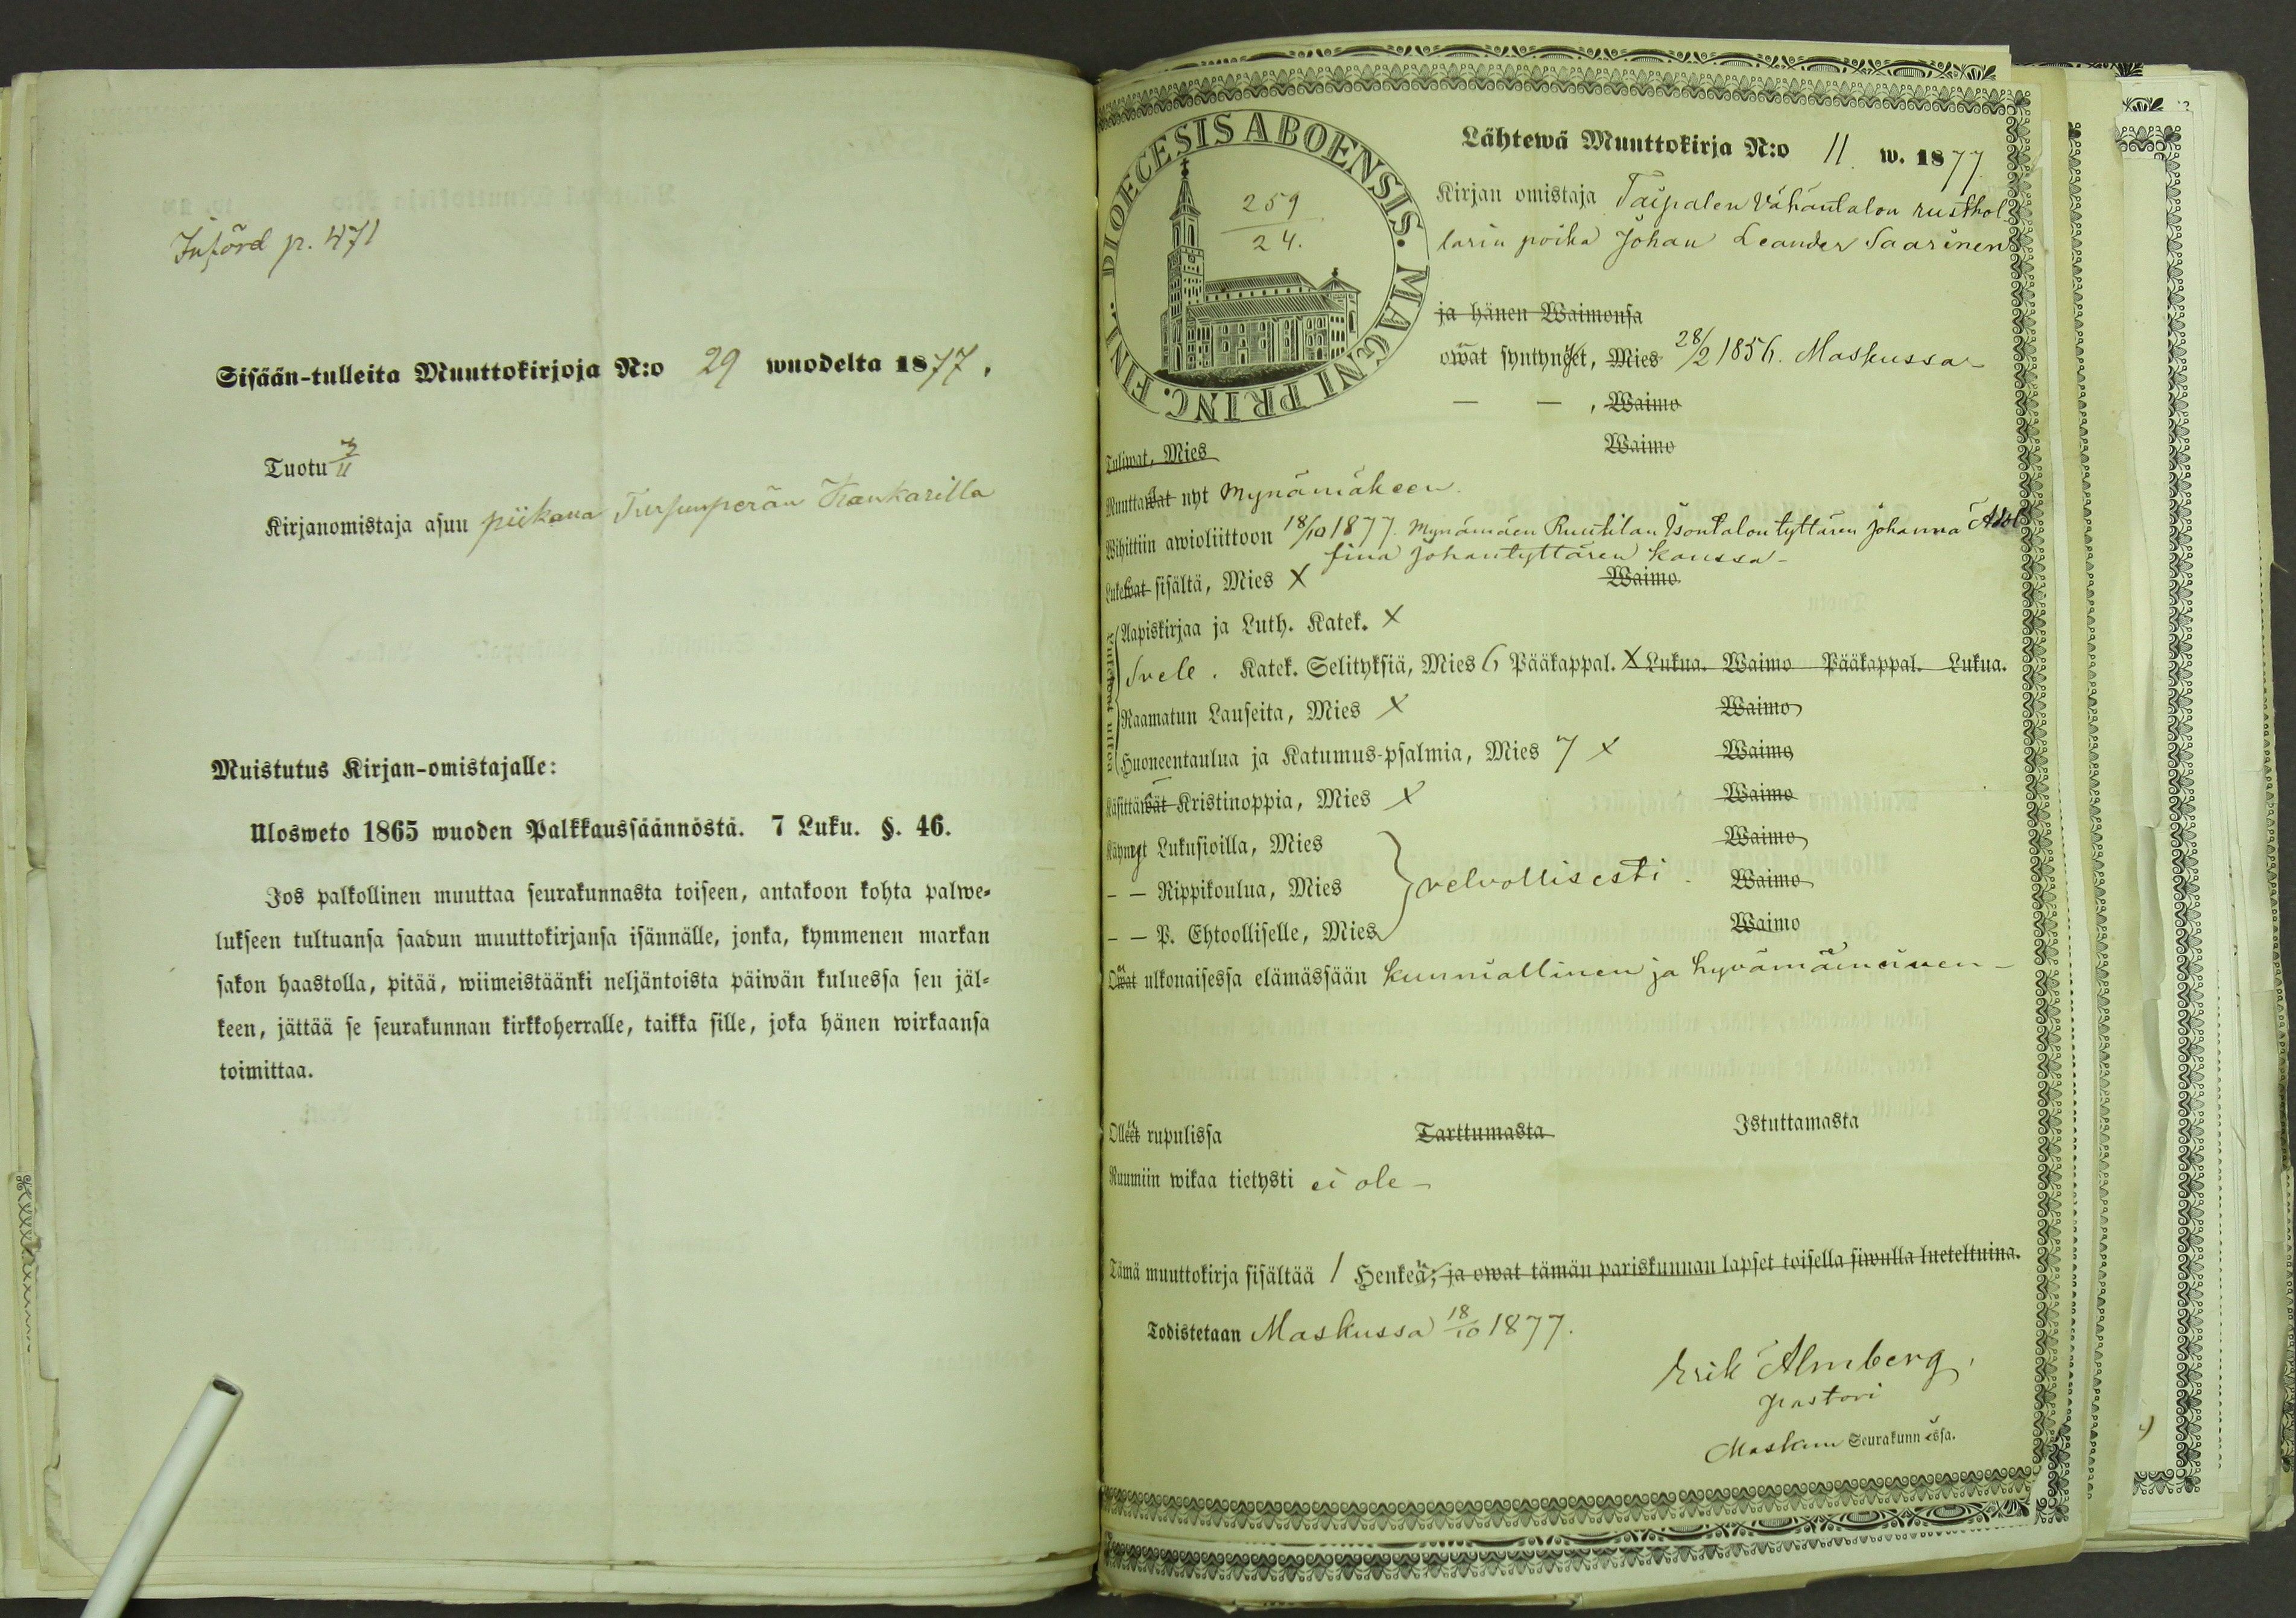 Införd p. 471
Sisään-tulleita Muuttokirjoja N:o 29 wuodelta 1877.
Tuotu 3/11
Kirjanomistaja asuu piikana Tursunperän Kankarilla
Muistutus Kirjan-omistajalle:
Ulosweto 1865 wuoden Palkkaussäännöstä. 7 Luku. §. 46.
Jos palkollinen muuttaa seurakunnasta toiseen, antakoon kohta palwe-
lukseen tultuansa saadun muuttokirjansa isännälle, jonka, kymmenen markan
sakon haastolla, pitää, wiimeistäänki neljäntoista päiwän kuluessa sen jäl-
keen, jättää se seurakunnan kirkkoherralle, taikka sille, joka hänen wirkaansa
toimittaa.
DIOECESIS ABOENSIS. MAGNI PRINC. FINL.
259
24.
Lähtewä Muuttokirja N:o 11 w. 1877
Kirjan omistaja Taipalen Vähäntalon rusthol-
larin poika Johan Leander Saarinen
ja hänen Waimonsa
owat syntynyet, Mies 28/2 1856. Maskussa
— — , Waimo
Tuliwat, Mies Waimo
Muuttawat nyt Mynämäkeen.
Wihittiin awioliittoon 18/10 1877. Mynämäen Ruutilan Isontalon tyttären Johanna Adol
fina Johantyttären kanssa
Lukewat sisältä, Mies X Waimo
Lukewat ulkoa
Aapiskirjaa ja Luth. Katek. X
Svele. Katek. Selityksiä, Mies 6 Pääkappal. X Lukua. Waimo Pääkappal. Lukua.
Raamatun Lauseita, Mies X Waimo
Huoneentaulua ja Katumus-psalmia, Mies 7 X Waimo
Käsittäwät Kristinoppia, Mies X Waimo
Käynyt Lukusioilla, Mies Waimo
– — Rippikoulua, Mies velvollisesti. Waimo
– — P. Ehtoolliselle, Mies Waimo
Owat ulkonaisessa elämässään kunniallinen ja hyvämäineinen
Olleet rupulissa Tarttumasta Istuttamasta
Ruumiin wikaa tietysti ei ole
Tämä muuttokirja sisältää 1 Henkeä, ja owat tämän pariskunnan lapset toisella siwulla lueteltuina.
Todistetaan Maskussa 18/10 1877.
Erik Almberg,
pastori
Maskun Seurakunnassa.